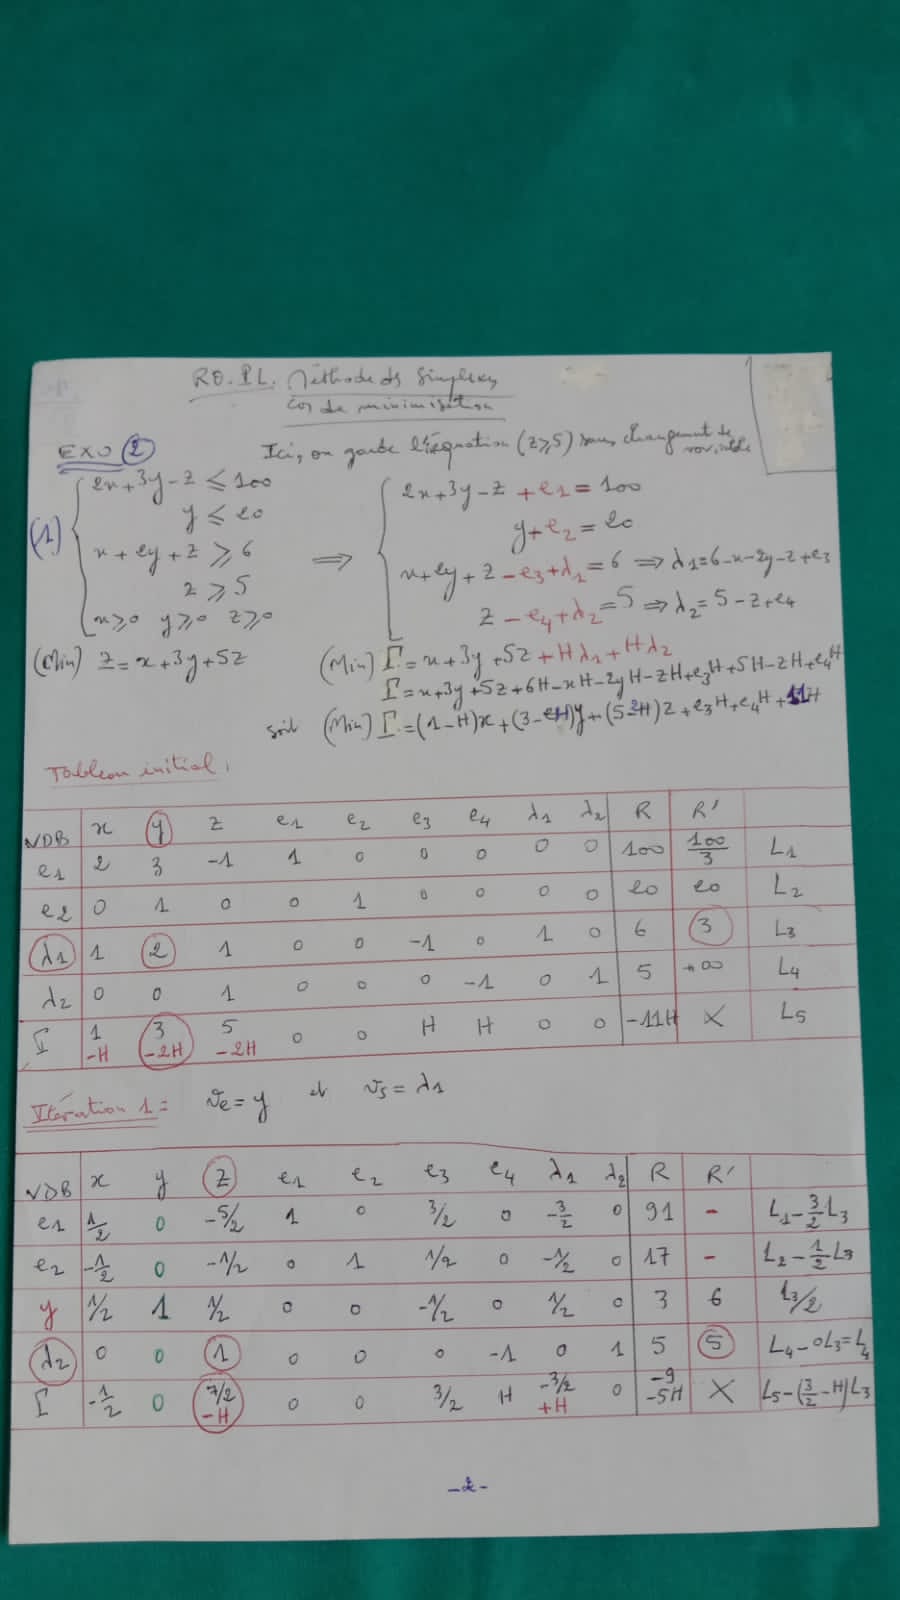 RO.PL. Méthode ds Simplexes
Cas de minimisation
EXO 2 Ici, on garde l'équation (z≥5) sans changement de variable
(1) 2x+3y-z ≤ 100 ⟹ 2x+3y-z+e1 = 100
y ≤ 20 y+e2 = 20
x+2y+z ≥ 6 x+2y+z-e3+λ1 = 6 ⟹ λ1=6-x-2y-z+e3
z ≥ 5 z-e4+λ2 = 5 ⟹ λ2 = 5-z+e4
x≥0 y≥0 z≥0
(Min) Z = x+3y+5z (Min) Γ = x+3y+5z+Hλ1+Hλ2
Γ = x+3y+5z+6H-xH-2yH-zH+e3H+5H-zH+e4H
soit (Min) Γ = (1-H)x+(3-2H)y+(5-2H)z+e3H+e4H+11H
Tableau initial,
VDB x y z e1 e2 e3 e4 λ1 λ2 R R'
e1 2 3 -1 1 0 0 0 0 0 100 100/3 L1
e2 0 1 0 0 1 0 0 0 0 20 20 L2
λ1 1 2 1 0 0 -1 0 1 0 6 3 L3
λ2 0 0 1 0 0 0 -1 0 1 5 +∞ L4
Γ 1-H 3-2H 5-2H 0 0 H H 0 0 -11H X L5
Itération 1 = ve = y et vs = λ1
VDB x y z e1 e2 e3 e4 λ1 λ2 R R'
e1 1/2 0 -5/2 1 0 3/2 0 -3/2 0 91 - L1-3/2 L3
e2 -1/2 0 -1/2 0 1 1/2 0 -1/2 0 17 - L2-1/2 L3
y 1/2 1 1/2 0 0 -1/2 0 1/2 0 3 6 L3/2
λ2 0 0 1 0 0 0 -1 0 1 5 5 L4-0L3=L4
Γ -1/2 0 7/2-H 0 0 3/2 H -3/2+H 0 -9-5H X L5-(3/2-H)L3
-2-